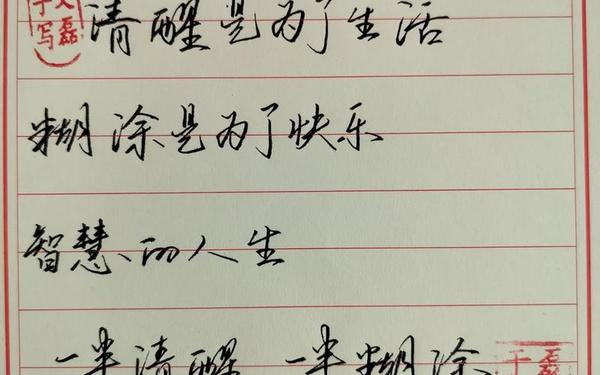 清醒是为了生活
糊涂是为了快乐
智慧的人生
一半清醒 一半糊涂